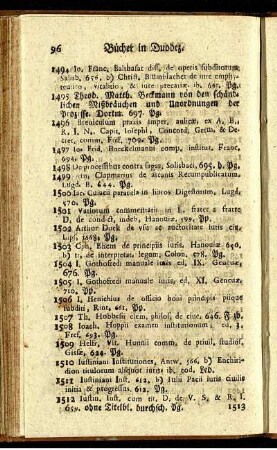 96 Bücher in Duodez.
1494 Io. Franc. Balthasar diss. de operis subditorum,
Salisb. 656, b) Christ. Bittenbacher de iure emphy-
teutico, vitalitio, & iure precariæ ib. 641. Pg.
1495 Theod. Matth. Beckmann von den schänd-
lichen Mißbräuchen und Unordnungen der
Prozesse. Dortm. 697. Pg.
1496 Breuiculum praxis imper. aulicæ, ex A, B,
R, I, N, Capit, Ioseph I, Concord, Germ. & De-
cret, comm, Fref, 709. Pg.
1497 Io. Frid, Boeckelmann comp, institut, Franc,
694. Pg.
1498 De processibus contra sagas, Solisbaci, 695. h. Pg.
1499 Arn, Clapmarius de arcanis Rerumpublicarum,
Lugd. B. 644. Pg.
1500 Iac. Cuiacii paratitla in libros Digestorum, Lugd,
570. Pg.
1501 Variorum commentarii in I. frater a fratre
D, de condict, indeb, Hanoviæ, 592. Pp.
1502 Arthur Duck de vsu ac auctoritate iuris civ,
Lipf, 1668. Pg.
1503 Cph, Eheim de principiis iuris. Hanoviæ 640.
b) tr, de interpretat. legum, Colon, 578. Pg.
1504 I, Gothofredi manuale iuris ed, IX. Genevæ,
676. Pg.
1505 I, Gothofredi manuale iuris, ed, XI Genevæ,
710. Pg.
1506 I, Henichius de officio boni principis piique
subditi, Rint. 661. Pp.
1507 Th. Hobbesii elem. philos, de cive, 646. F. h.
1508 Ioach. Hoppii examen institutionum, ed. 3,
Fref, 693. Pg.
1509 Helfr, Vlt. Hunnii comm, de priuil, studios,
Gisse, 624. Pg.
1510 Iustiniani Institutiones, Antw, 566, b) Enchiri-
dion titulorum aliquot iuris ib, eod, Led.
1511 Iustiniani Inst, 612, b) Iulii Pacii iuris ciuilis
initia & progressus, 612. Pg.
1512 Iustin, Inst, cum tit, D, de V, S, & R, I.
650. ohne Titelbl. durchsch. Pg.
1513